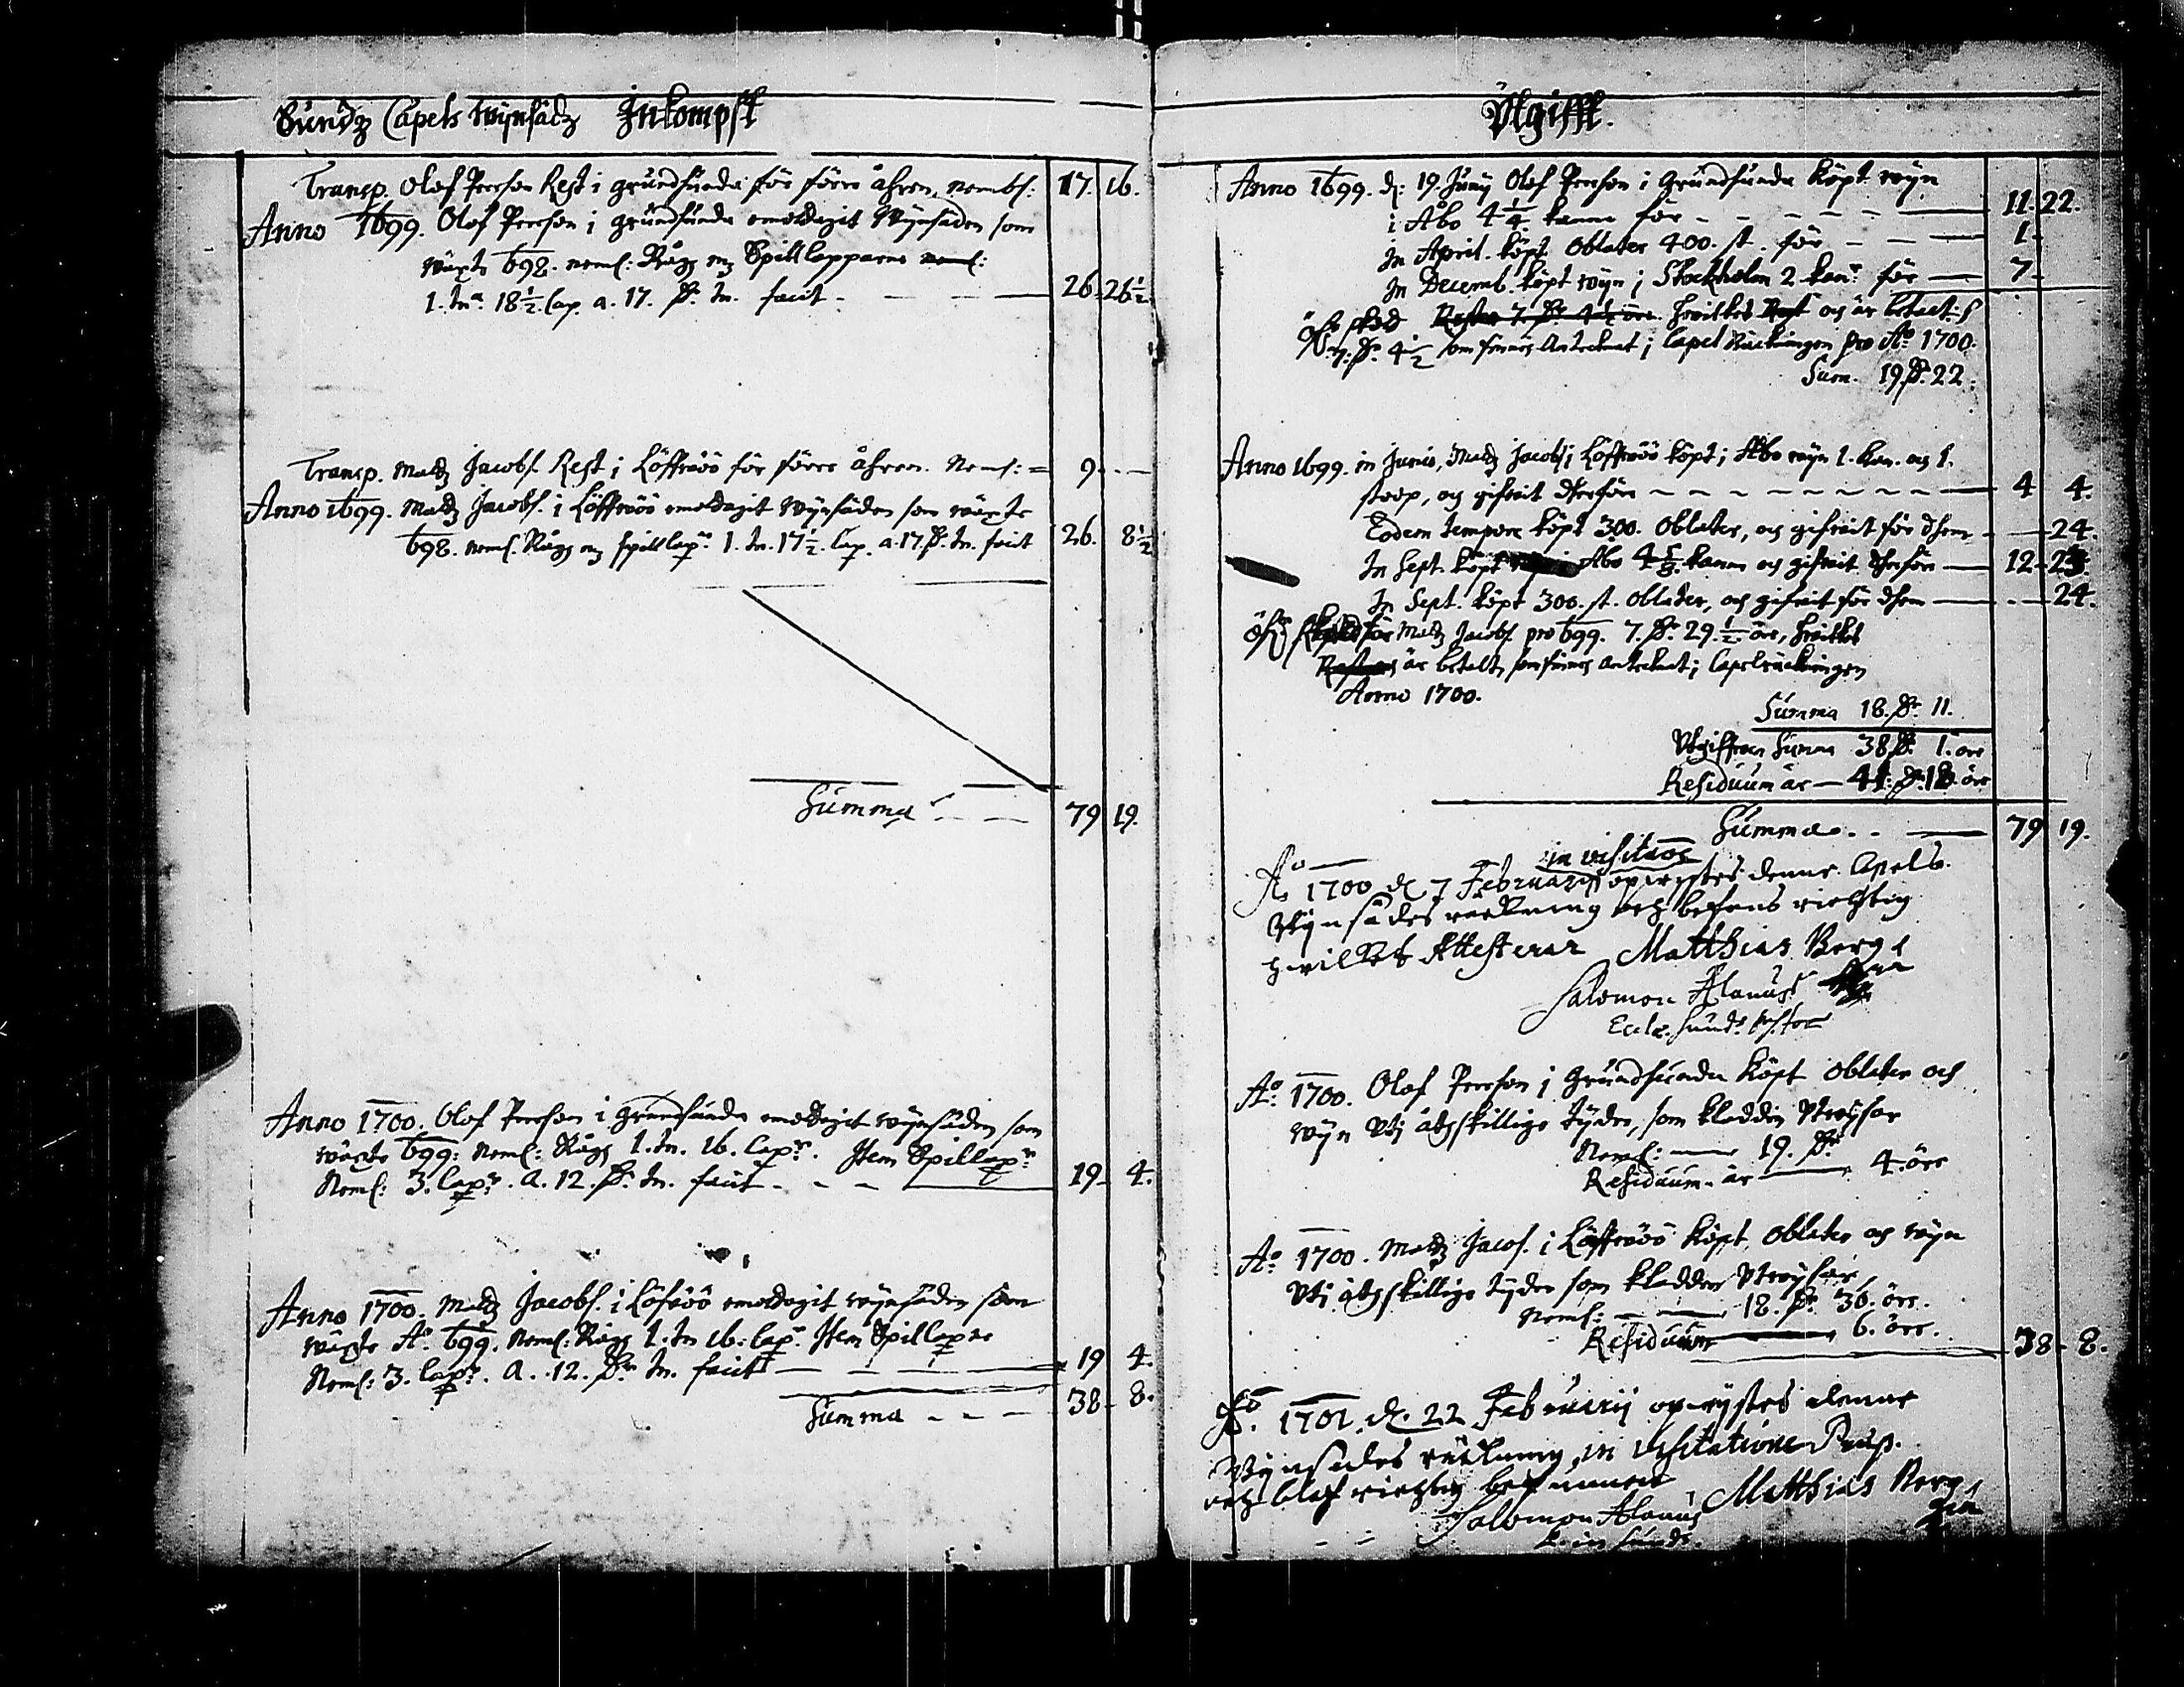 Sundz Capels wijnsädz Inkompst
Transp. Olof Peerson Rest i grundsunda för förre åhren, nembl: 17. 16.
Anno 1699. Olof Peerson i grundsunda emottagit Wijnsäden som
wäxte 698. neml: Rågg med Spillcapparne neml:
1. tna 18½ cap. a. 17. dr. tn. facit - - - 26. 26½
Transp. Matz Jacobs. Rest i Löffwöö för förre åhren. Neml: = 9. - -
Anno 1699. Matz Jacobs. i Löffwöö emottagit Wijnsäden som wäxte
698. neml. Rågg med spillcapr 1. tn. 17½. cap. a. 17. dr. tn. facit 26. 8½
Summa - - 79 19.
Anno 1700. Olof Peerson i Grundsunda emottagit wijnsäden som
wäxte 699: neml: Rågg 1. tn. 16. capr. Item Spillcapr
Neml: 3. capr. a. 12. dr. tn. facit - - - 19 4.
Anno 1700. Matz Jacobs. i Löfwöö emottagit wijnsäden som
wäxte Ao. 699. neml: Rågg 1. tn 16. capr Item Spillcapr
Neml: 3. capr. a. 12. dr tn. facit - - - 19 4.
Summa - - - 38 - 8.
Utgifft.
Anno 1699. d: 19. Junij Olof Peerson i Grundsunda köpt wijn
i Åbo 4¼ kanna för - - - - - 11. 22.
In April. köpt Oblater 400. st. för - - 1 -
In Decemb. köpt wijn i Stockholm 2 kanr för - 7 -
Rester 7. dr 4½ öre. hwilket och är betalt
7. dr. 4½ som finnes Antecknat i Capel Räckningen pro Ao. 1700.
Sum. 19. dr. 22.
Anno 1699. in Junio, Matz Jacobs i Löffwöö köpt i Åbo wijn 1. kan. och 1.
stoop, och gifwit therföre - - - - - - - - - 4 4.
Eodem tempore köpt 300. Oblater, och gifwit för them - - 24.
In Sept. köpt Åbo 4 kanna och gifwit therföre - 12 - 23
In Sept. köpt 300. st. Oblater, och gifwit för them - - - 24.
Matz Jacobs. pro 699. 7. dr. 29.½ öre, hwilket
är betalt som finnes antecknat i Capelräckningen
Anno 1700.
Summa 18. dr. 11.
Utgifften Summa 38. dr. 1. öre
Residuum är - 41. dr. 18. öre
Summa - - - 79 19.
in visitaõe
Ao 1700 d 7 Februarij opwystes denne Capels
Wijnsädes räckning och befans richtig
hwilket Attesterar Matthias Berg
Salomon Alanus
Eccles. Sund. Pastor
Ao. 1700. Olof Peerson i Grundsunda köpt oblater och
wijn Utj åtskillige tijder, som kladden Utwijsar
Neml: - 19. dr
Residuum är - 4. öre
Ao. 1700. Matz Jacos. i Löffwöö köpt oblater och wijn
Utj åtskillige tijder som kladden Utwijsar,
Neml: - - 18. dr 30. öre.
Residuum - 6. öre. 38 - 8.
Ao. 1701. d. 22 Februarij opwystes denne
Wijnsädes räckning, in visitatione
och blef richtig befunnen Matthias Berg
Salomon Alanus
P. in Sund.